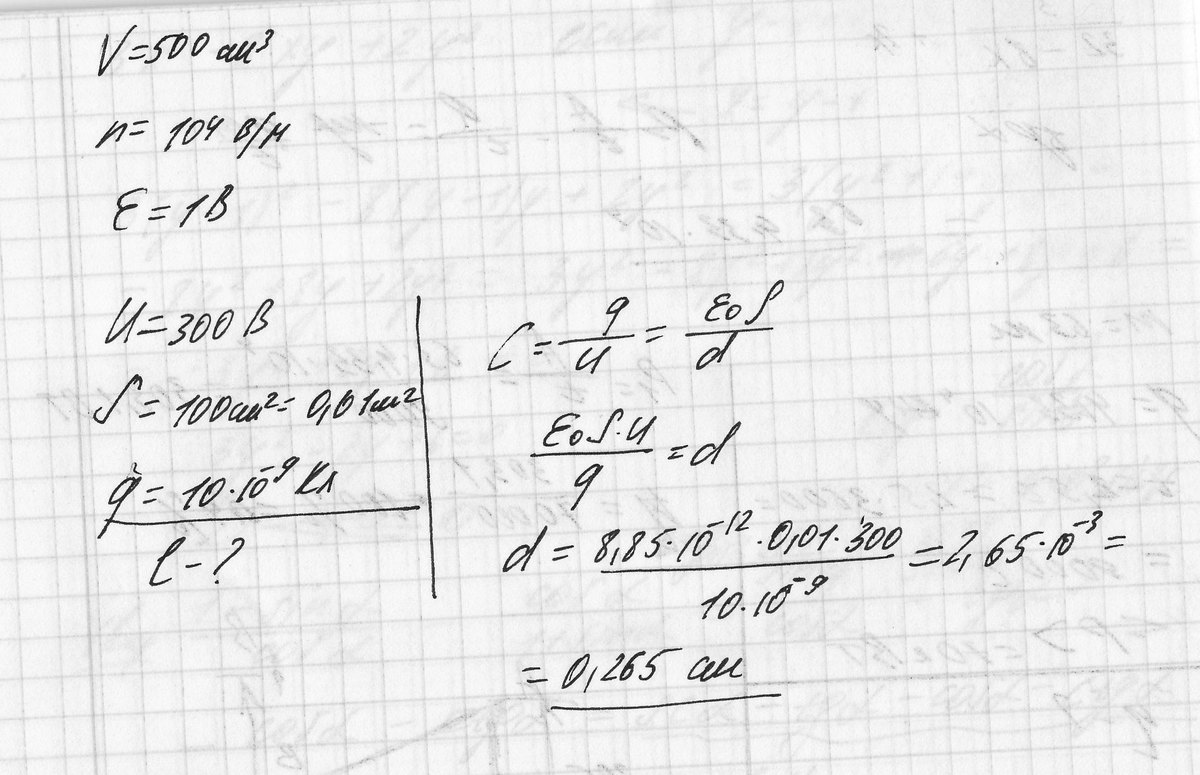 V = 500 см³
n = 104 В/м
Ɛ = 1 В
U = 300 В
S = 100 см² = 0,01 м²
q = 10·10⁻⁹ Кл
l - ?
C = q/U = ε₀S/d
ε₀S·U/q = d
d = 8,85·10⁻¹²·0,01·300/10·10⁻⁹ = 2,65·10⁻³ =
= 0,265 см